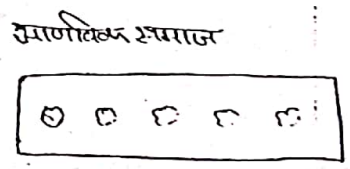 आणविक समाज